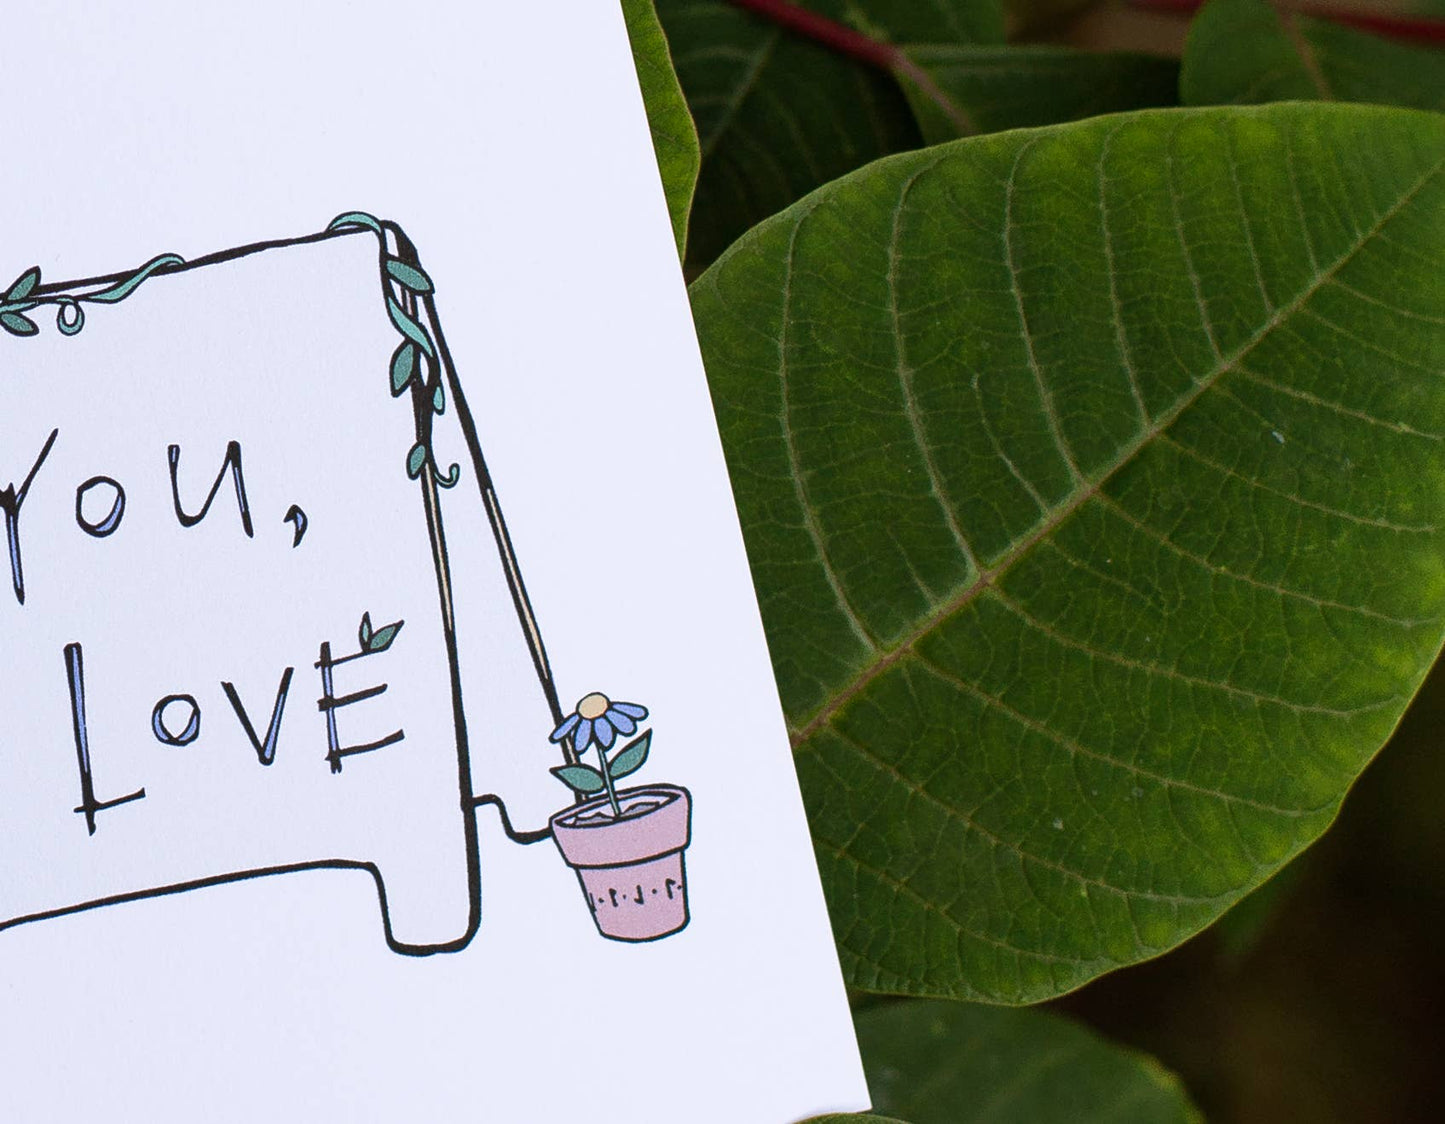 You,
LOVE